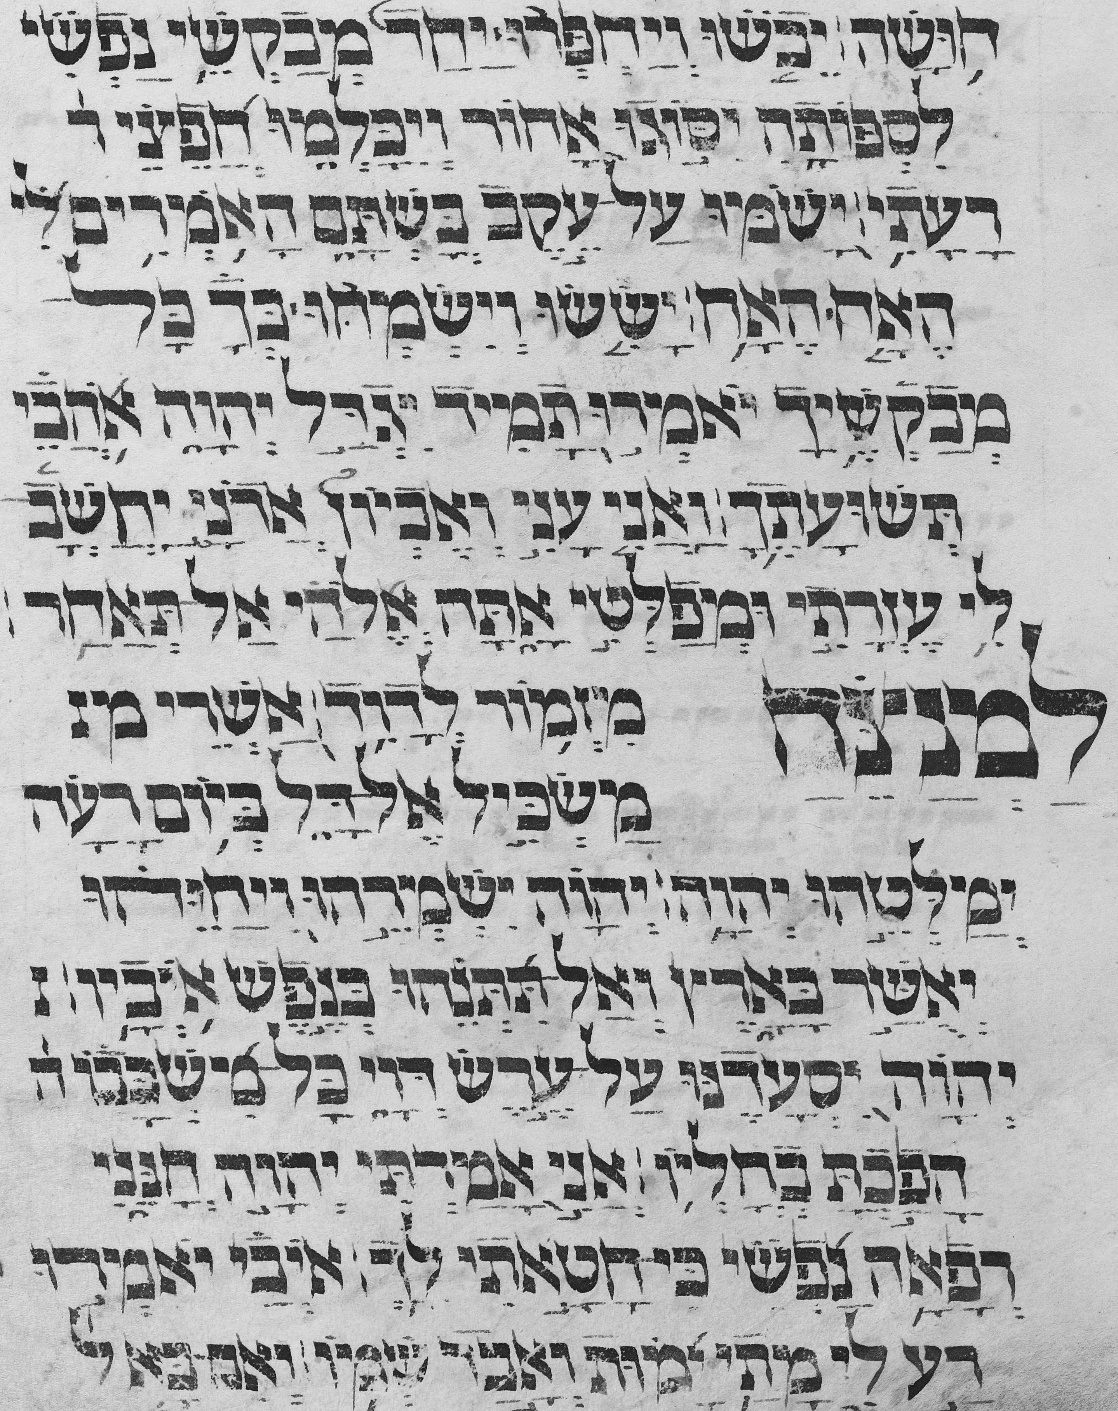 חוּשָׁה׃ יֵבֹשׁוּ וְיַחְפְּרוּ יַחַד מְבַקְשֵׁי נַפְשִׁי
לִסְפּוֹתָהּ יִסֹּגוּ אָחוֹר וְיִכָּלְמוּ חֲפֵצֵי ר
רָעָתִי׃ יָשֹׁמּוּ עַל עֵקֶב בָּשְׁתָּם הָאֹמְרִים לִי
הֶאָח הֶאָח׃ יָשִׂשׂוּ וְיִשְׂמְחוּ בְּךָ כָּל
מְבַקְשֶׁיךָ יֹאמְרוּ תָמִיד יִגְדַּל יְהוָה אֹהֲבֵי
תְּשׁוּעָתֶךָ׃ וַאֲנִי עָנִי וְאֶבְיוֹן אֲדֹנָי יַחֲשָׁב
לִי עֶזְרָתִי וּמְפַלְּטִי אַתָּה אֱלֹהַי אַל תְּאַחַר׃
לַמְנַצֵּחַ מִזְמוֹר לְדָוִד׃ אַשְׁרֵי מנ
מַשְׂכִּיל אֶל דָּל בְּיוֹם רָעָה
יְמַלְּטֵהוּ יְהוָה׃ יְהוָה יִשְׁמְרֵהוּ וִיחַיֵּהוּ
יְאֻשַּׁר בָּאָרֶץ וְאַל תִּתְּנֵהוּ בְּנֶפֶשׁ אֹיְבָיו׃ נ
יְהוָה יִסְעָדֶנּוּ עַל עֶרֶשׂ דְּוָי כָּל מִשְׁכָּבוֹ ה
הָפַכְתָּ בְחָלְיוֹ׃ אֲנִי אָמַרְתִּי יְהוָה חָנֵּנִי
רְפָאָה נַפְשִׁי כִּי חָטָאתִי לָךְ׃ אוֹיְבַי יֹאמְרוּ
רַע לִי מָתַי יָמוּת וְאָבַד שְׁמוֹ׃ וְאִם בָּא ל